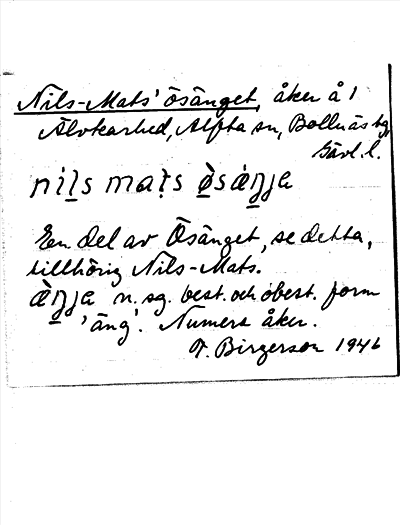 Nils-Mats' Ösänget, åker å 1
Älvkarhed, Alfta sn, Bollnäs tg
Gävl. l.
nils mats ö̀sáŋja
En del av Ösänget, se detta,
tillhörig Nils-Mats.
ä̀ŋja n. sg. best. och obest. form
'äng'. Numera åker.
F. Birgerson 1946